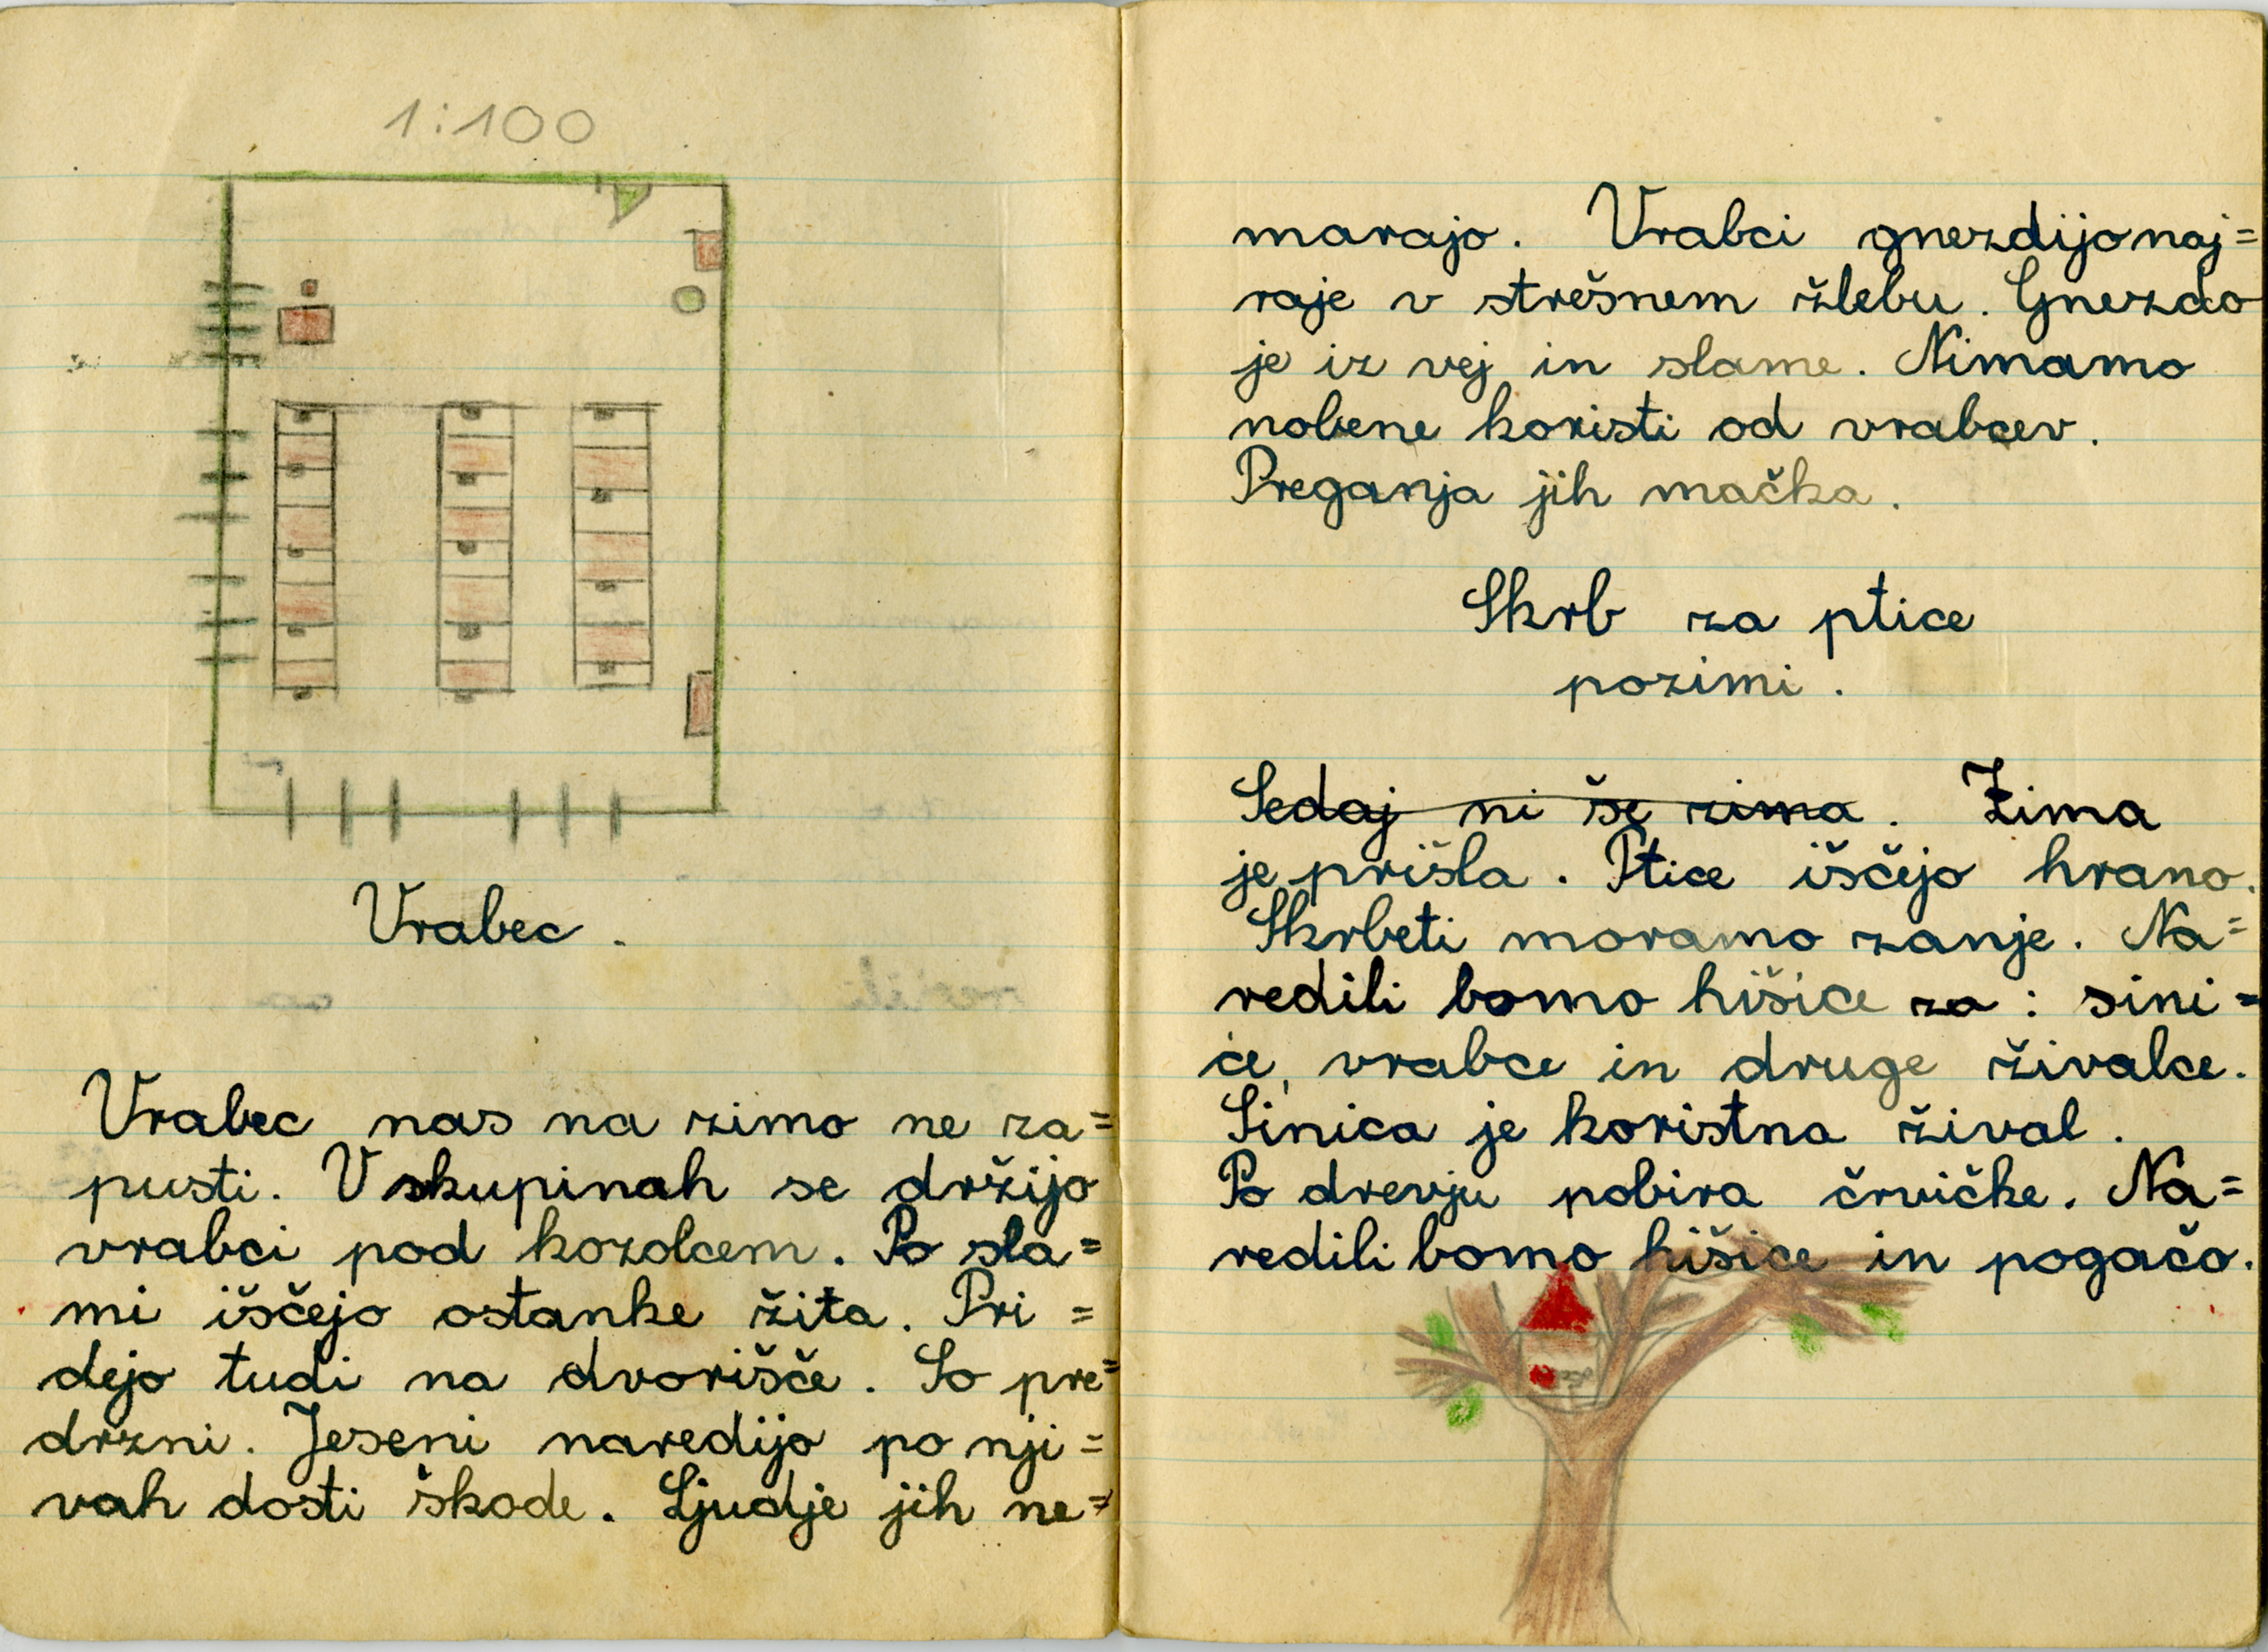 1:100
Vrabec.
Vrabec nas na zimo ne za=
pusti. V skupinah se držijo
vrabci pod kozolcem. Po sla=
mi iščejo ostanke žita. Pri=
dejo tudi na dvorišče. So pre=
drzni. Jeseni naredijo po nji=
vah dosti škode. Ljudje jih ne=
marajo. Vrabci gnezdijo naj=
raje v strešnem žlebu. Gnezdo
je iz vej in slame. Nimamo
nobene koristi od vrabcev.
Preganja jih mačka.
Skrb za ptice
pozimi.
Sedaj ni še zima. Zima
je prišla. Ptice iščejo hrano.
Skrbeti moramo zanje. Na=
redili bomo hišice za: sini=
ce, vrabce in druge živalce.
Sinica je koristna žival.
Po drevju pobira črvičke. Na=
redili bomo hišice in pogačo.